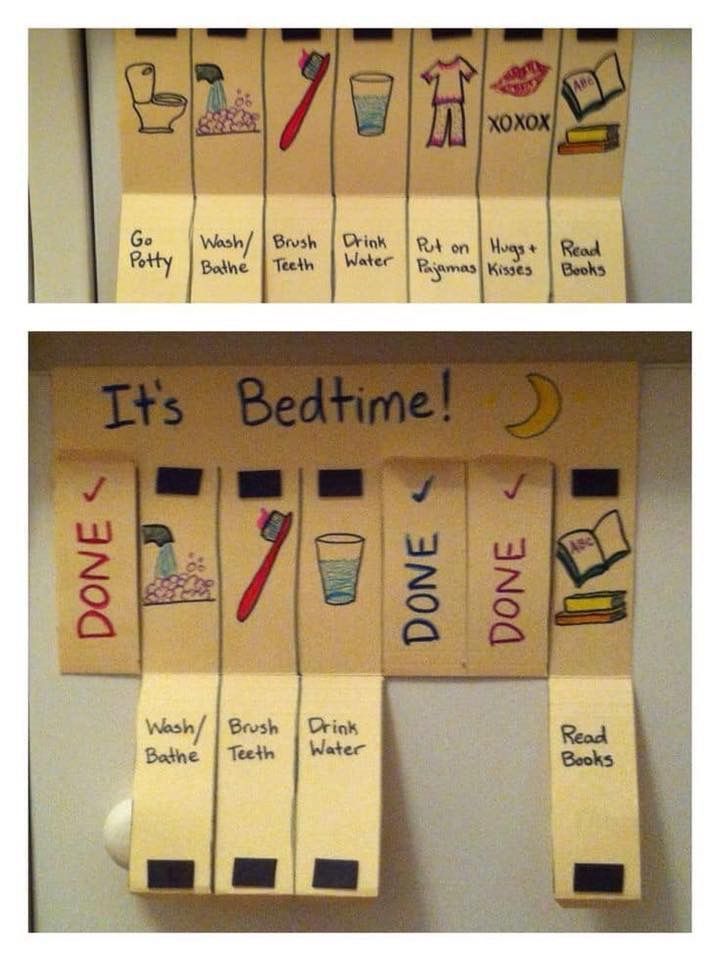 ABC
XOXOX
Go
Potty
Wash/
Bathe
Brush
Teeth
Drink
Water
Put on
Pajamas
Hugs +
Kisses
Read
Books
It's Bedtime!
DONE ✓
DONE ✓
DONE ✓
ABC
Wash/
Bathe
Brush
Teeth
Drink
Water
Read
Books